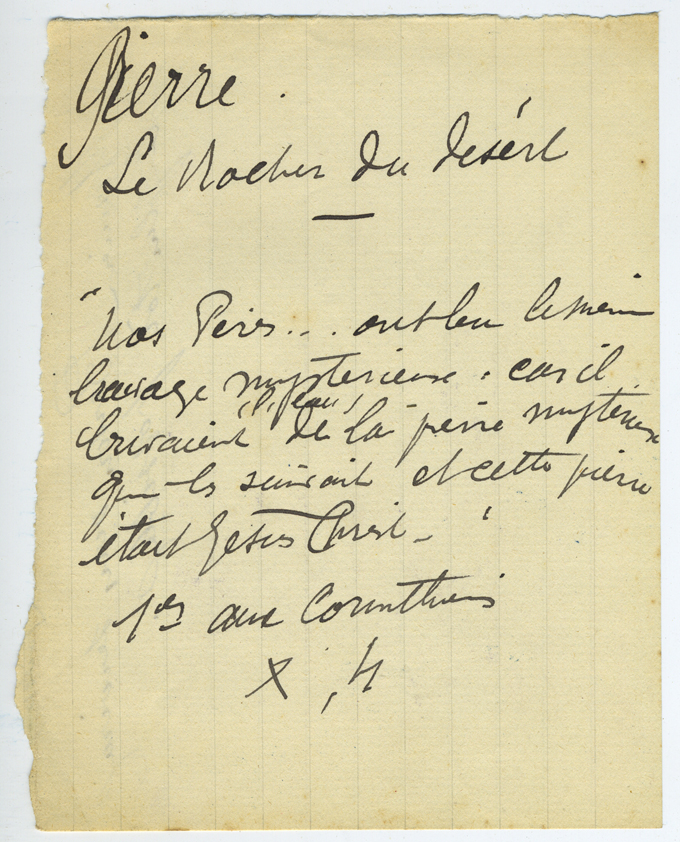 Pierre.
Le Rocher du desért
—
"Nos Pères... ont bu le même
breuvage mystérieux, car il
(l'eau)
buvaient de la pierre mystérieuse
qui les suivait et cette pierre
était Jésus Christ - "
1res aux Corinthiens
X, 4